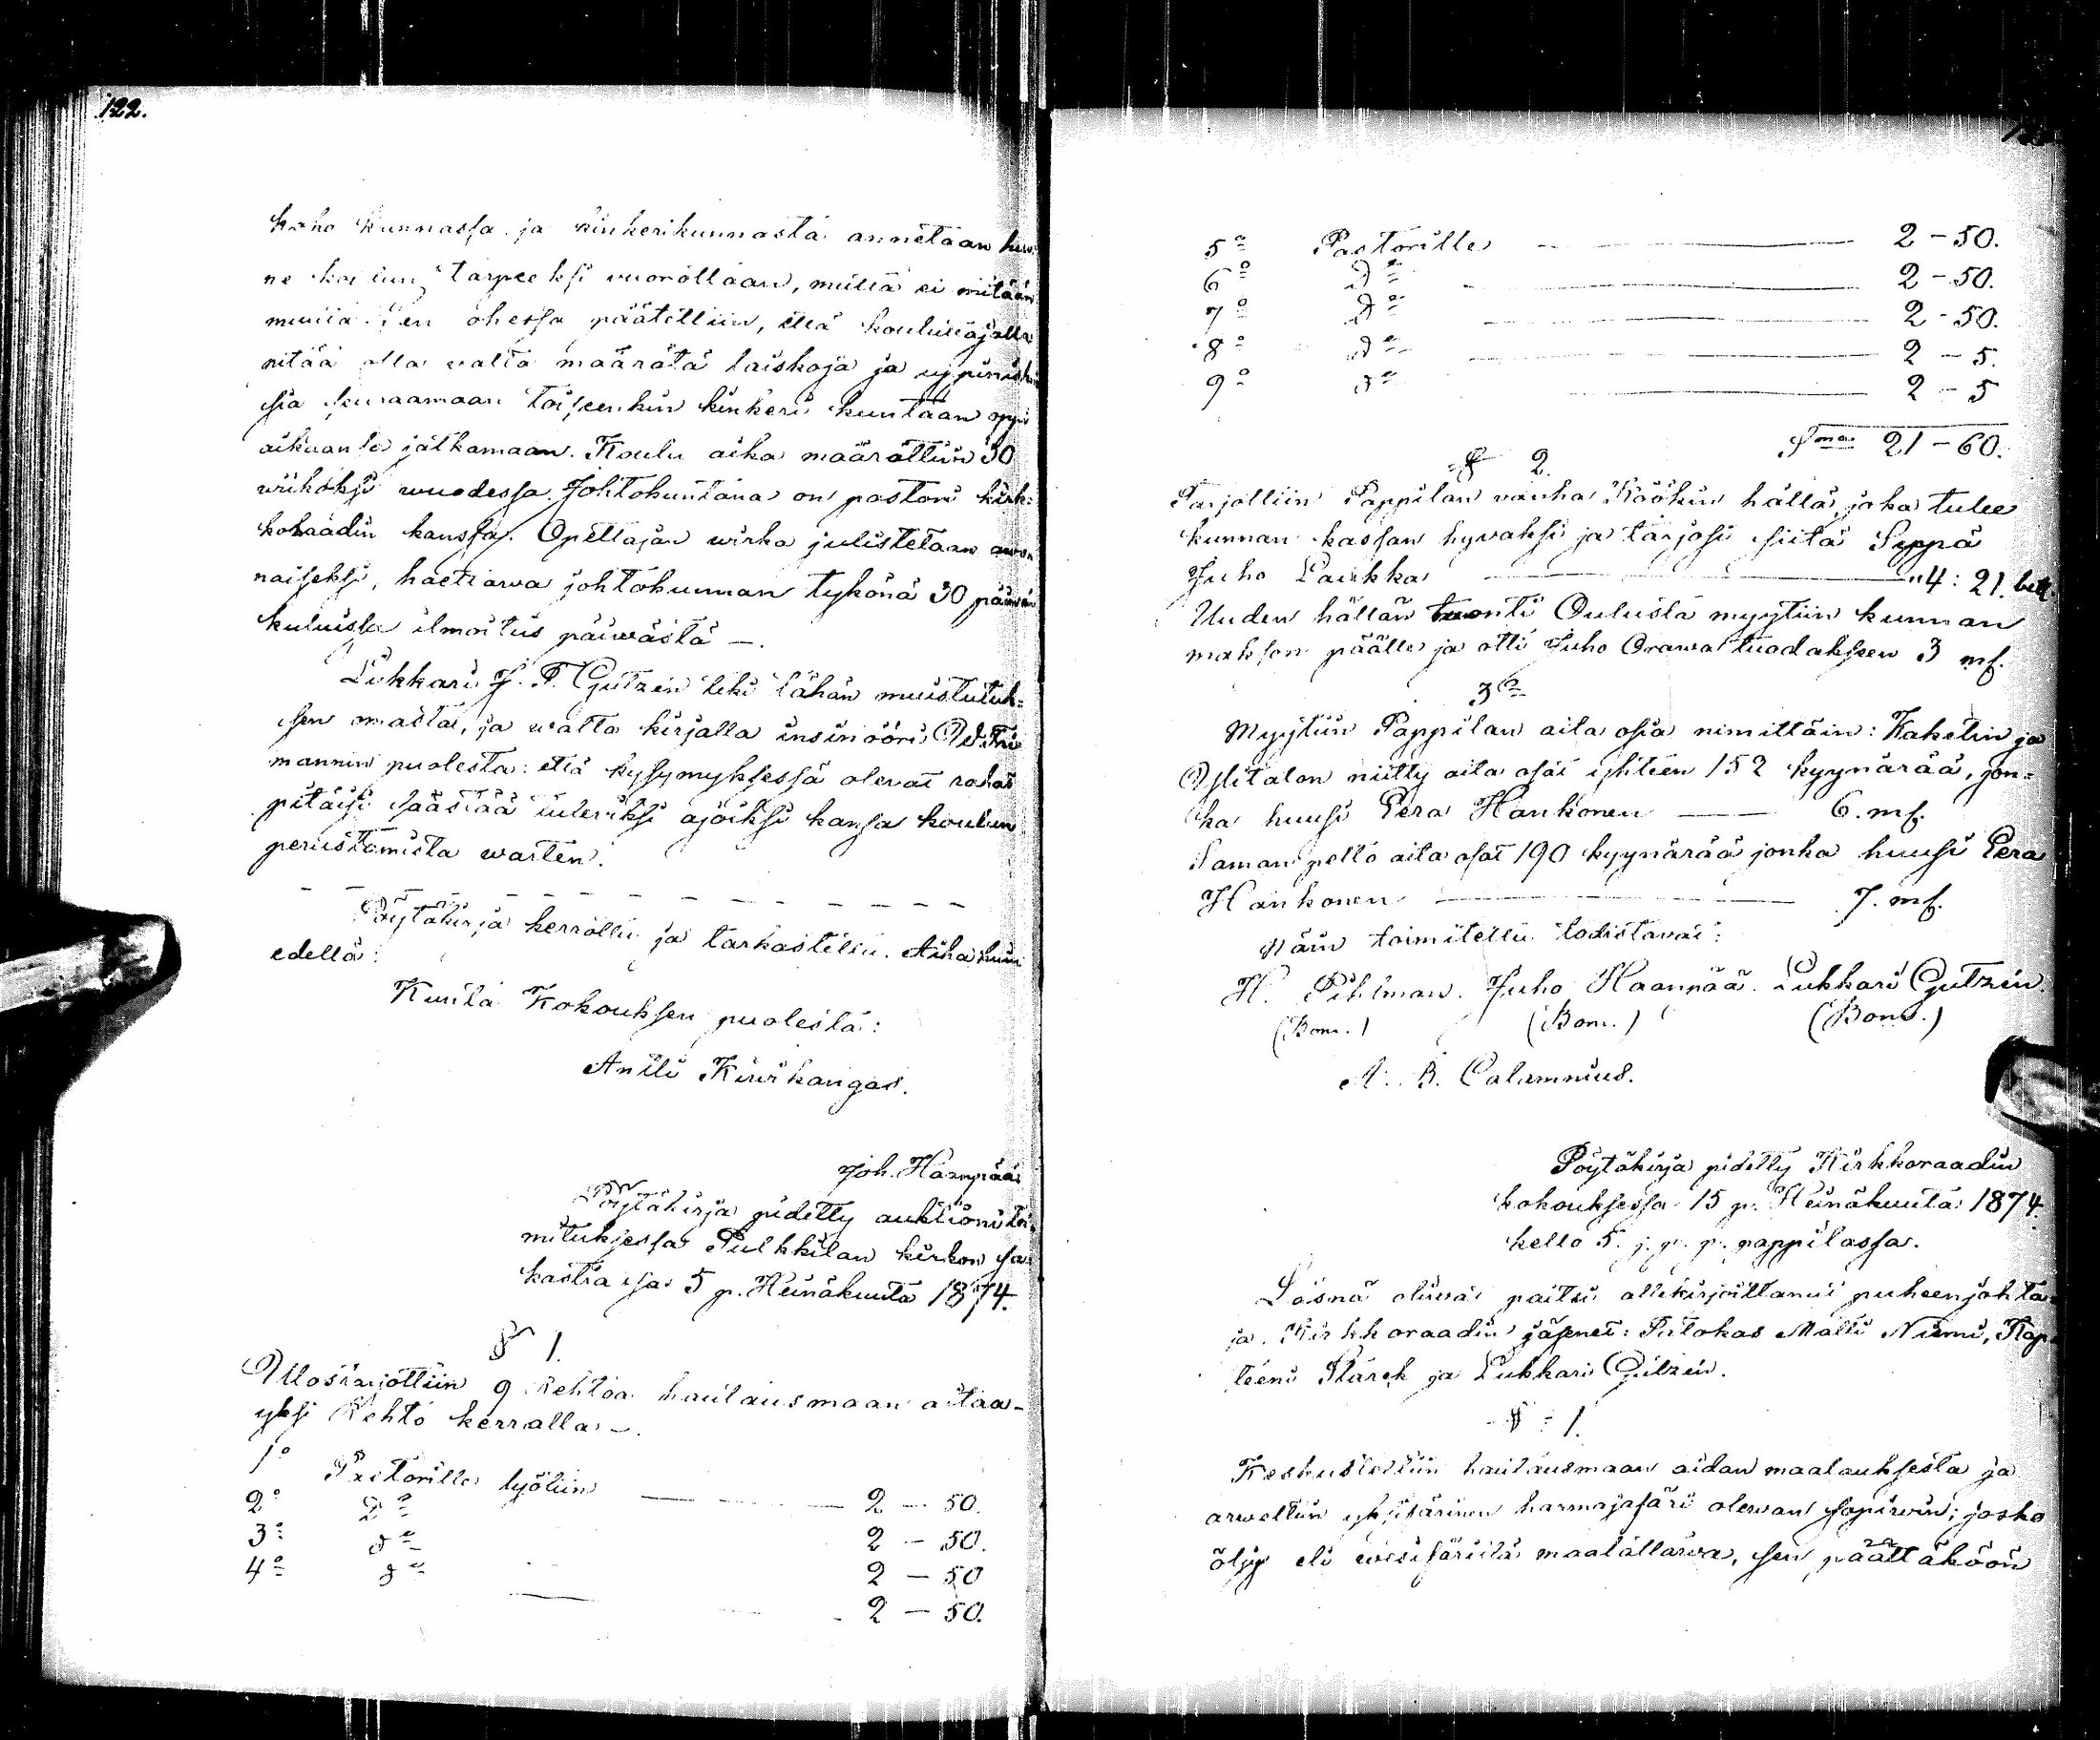 122.
koko kunnassa ja kinkerikunnasta annetaan huo-
ne koulun tarpeeksi vuorollaan, mutta ei mitään
muuta. Sen ohessa päätettiin, että kouluttajalla
pitää olla valta määrätä laiskoja ja uppinis
sia seuraamaan toiseenkin kinkeri kuntaan oppi
aikaansa jatkamaan. Koulu aika määrättiin 30
wiikoksi wuodessa. Johtokuntana on pastori kirk-
koraadin kanssa. Opettajan wirka julistetaan awo-
naiseksi, haettawa johtokunnan tykönä 30 päiwän
kuluissa ilmoitus päiwästä —.
Lukkari J. F. Gutzén teki tähän muistutuk-
sen omasta, ja walta kirjalla insinööri
mannin puolesta: että kysymyksessä olevat rahat
pitäisi säästää tuleviksi ajoiksi kansa koulun
perustamista warten.
Pöytäkirja kerrottu ja tarkastettu. Aika kuin
edellä:
Kunta Kokouksen puolesta:
Antti Kiurkangas.
Joh. Haanpää
Pöytäkirja pidetty auktioni toi-
mituksessa Pulkkilan kirkon sa-
kastia sa 5 p. Heinäkuuta 1874.
§ 1.
Ulostarjottiin 9 Kehtoa hautausmaan aitaa-
yksi Kehto kerralla —.
1° Pastorille lyötiin — 2 — 50.
2° d° 2 — 50.
3° d° 2 — 50
4° d° — 2 — 50.
5° Pastorille — 2 — 50.
6° d° — 2 — 50.
7° d° — 2 - 50.
8° d° — 2 — 5.
9° d° — 2 — 5
Sma 21 — 60.
§ 2.
Tarjottiin Pappilan vanha Köökin hälla, joka tulee
kunnan kassan hyväksi ja tarjosi siitä Seppä
Juho Laukka — "4: 21.
Uuden hällän tuonti Oulusta myytiin kunnan
makson päälle ja otti Juho Orawa tuodakseen 3 mk.
3°
Myytiin Pappilan aita osia nimittäin: Kaketin ja
Ylitalon niitty aita osat yhteen 152 kyynärää, jon-
ka huusi Pera Hankonen — 6. mk.
Saman pelto aita osat 190 kyynärää jonka huusi Pera
Hankonen — 7. mk.
Näin toimitetuksi todistavat:
H. Pihlman. Juho Haanpää. Lukkari Gutzén.
(Bom.) (Bom.) (Bom.)
A. B. Calamnius.
Pöytäkirja pidetty Kirkkoraadin
kokouksessa 15 p. Heinäkuuta 1874.
kello 5. j. p. p. pappilassa.
Läsnä oliwat paitsi allekirjoittanut puheenjohta-
ja. Kirkkoraadin jäsenet: Matti Niemi, Kap-
teeni Starck ja Lukkari Gutzén.
§ 1.
Keskusteltiin hautausmaan aidan maalauksesta ja
arweltiin yksitäinen harmajafäri olewan sopiwin; josko
öljy eli wesi färillä maalattawa, sen päättäköön